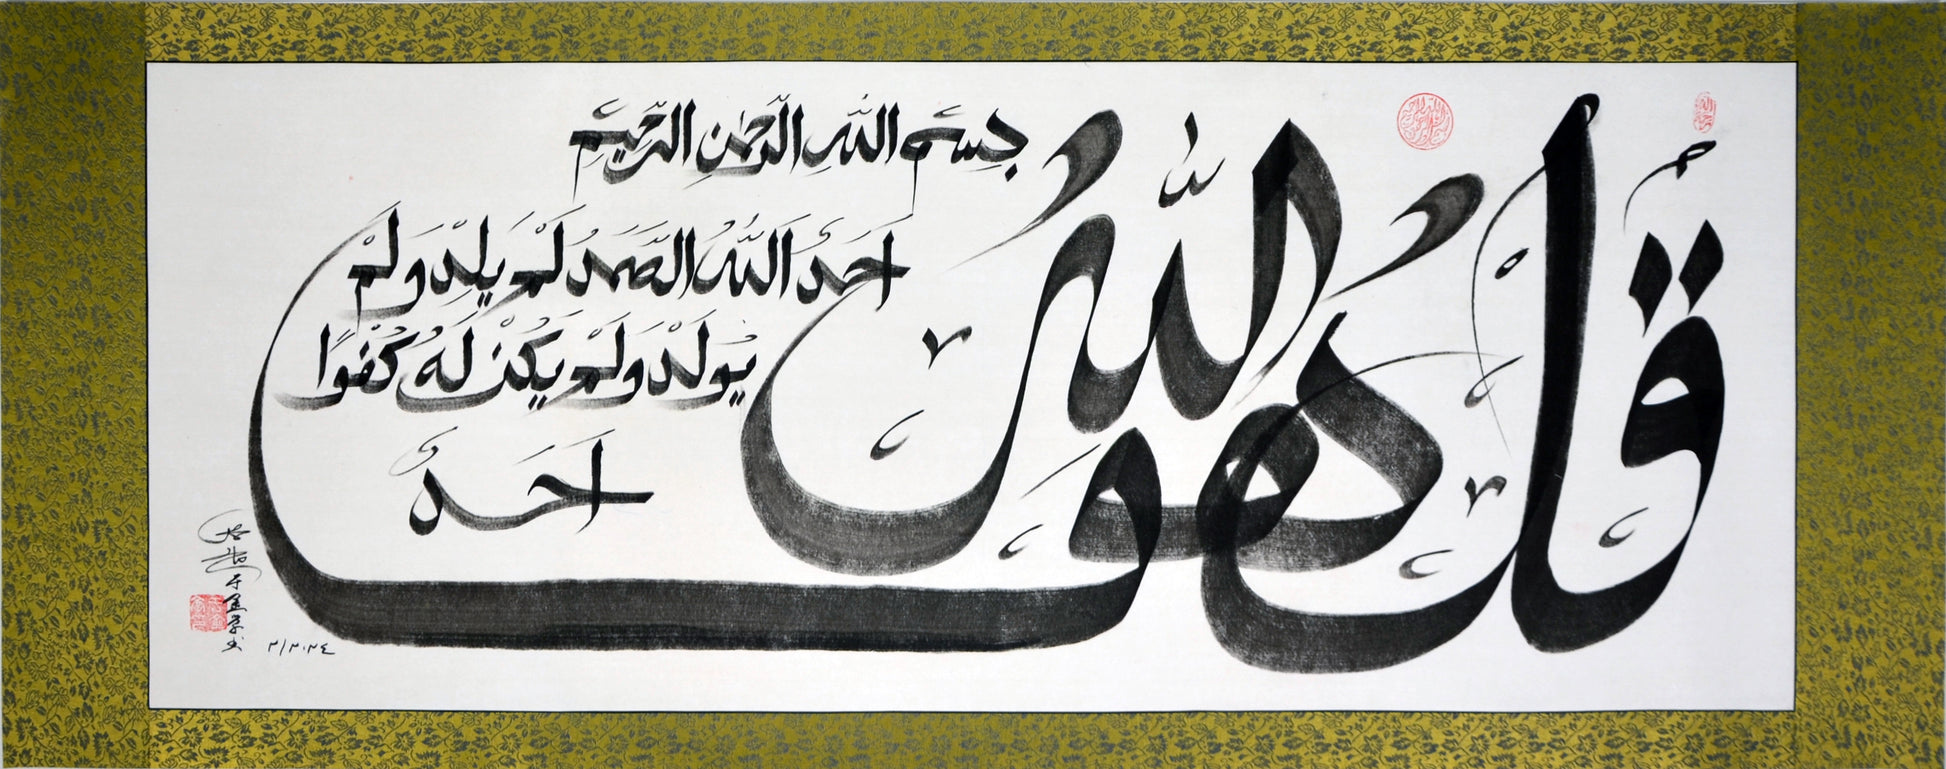 بِسْمِ اللّٰهِ الرَّحْمٰنِ الرَّحِيْمِ
قُلْ هُوَ اللّٰهُ
اَحَدٌ اَللّٰهُ الصَّمَدُ لَمْ يَلِدْ وَلَمْ
يُوْلَدْ وَلَمْ يَكُنْ لَهُ كُفُوًا
اَحَدٌ
٢/٢٠٢٤